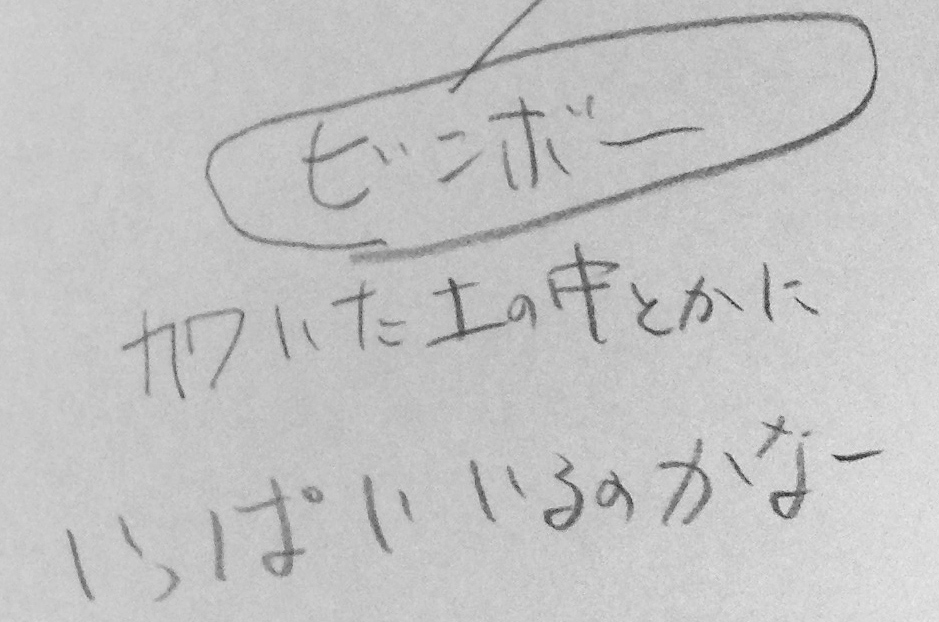 ビンボー
カワいた土の中とかに
いっぱい いるのかなー